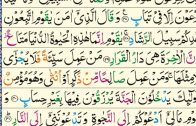 إِلَّا فِي تَبَابٍ وَقَالَ الَّذِي ءَامَنَ يَٰقَوْمِ اتَّبِعُونِ
أَهْدِكُمْ سَبِيلَ الرَّشَادِ يَٰقَوْمِ إِنَّمَا هَٰذِهِ الْحَيَوٰةُ الدُّنْيَا مَتَٰعٌ
الْءَاخِرَةَ هِيَ دَارُ الْقَرَارِ مَنْ عَمِلَ سَيِّئَةً فَلَا يُجْزَىٰ
وَمَنْ عَمِلَ صَٰلِحًا مِّن ذَكَرٍ أَوْ أُنثَىٰ وَهُوَ مُؤْمِنٌ
يَدْخُلُونَ الْجَنَّةَ يُرْزَقُونَ فِيهَا بِغَيْرِ حِسَابٍ
أَدْعُوكُمْ إِلَى النَّجَوٰةِ وَتَدْعُونَنِي إِلَى